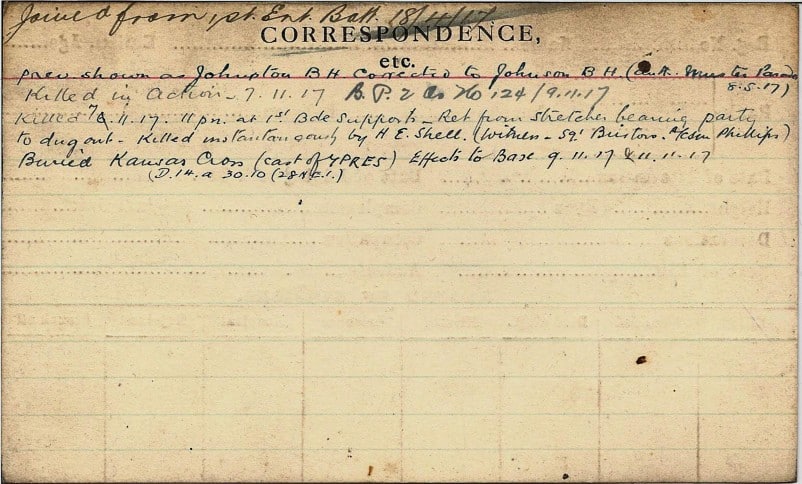 Joined from 1st. Ent. Batt. 18/4/17
CORRESPONDENCE,
etc.
prev. shown as Johnston B H. Corrected to Johnson B H. (auth. Muster Parade
8.5.17)
Killed in Action - 7.11.17 B. P. 2 No 124/9.11.17
Killed 7/8.11.17. 11 pm. at 1st Bde Supports - Ret from stretcher bearing party
to dug out - Killed instantaneously by H E. Shell. (Witness - Phillips)
Buried Kansas Cross (east of YPRES) Effects to Base 9.11.17 & 11.11.17
(D.14.a 30.10 (28 N.E.1.)